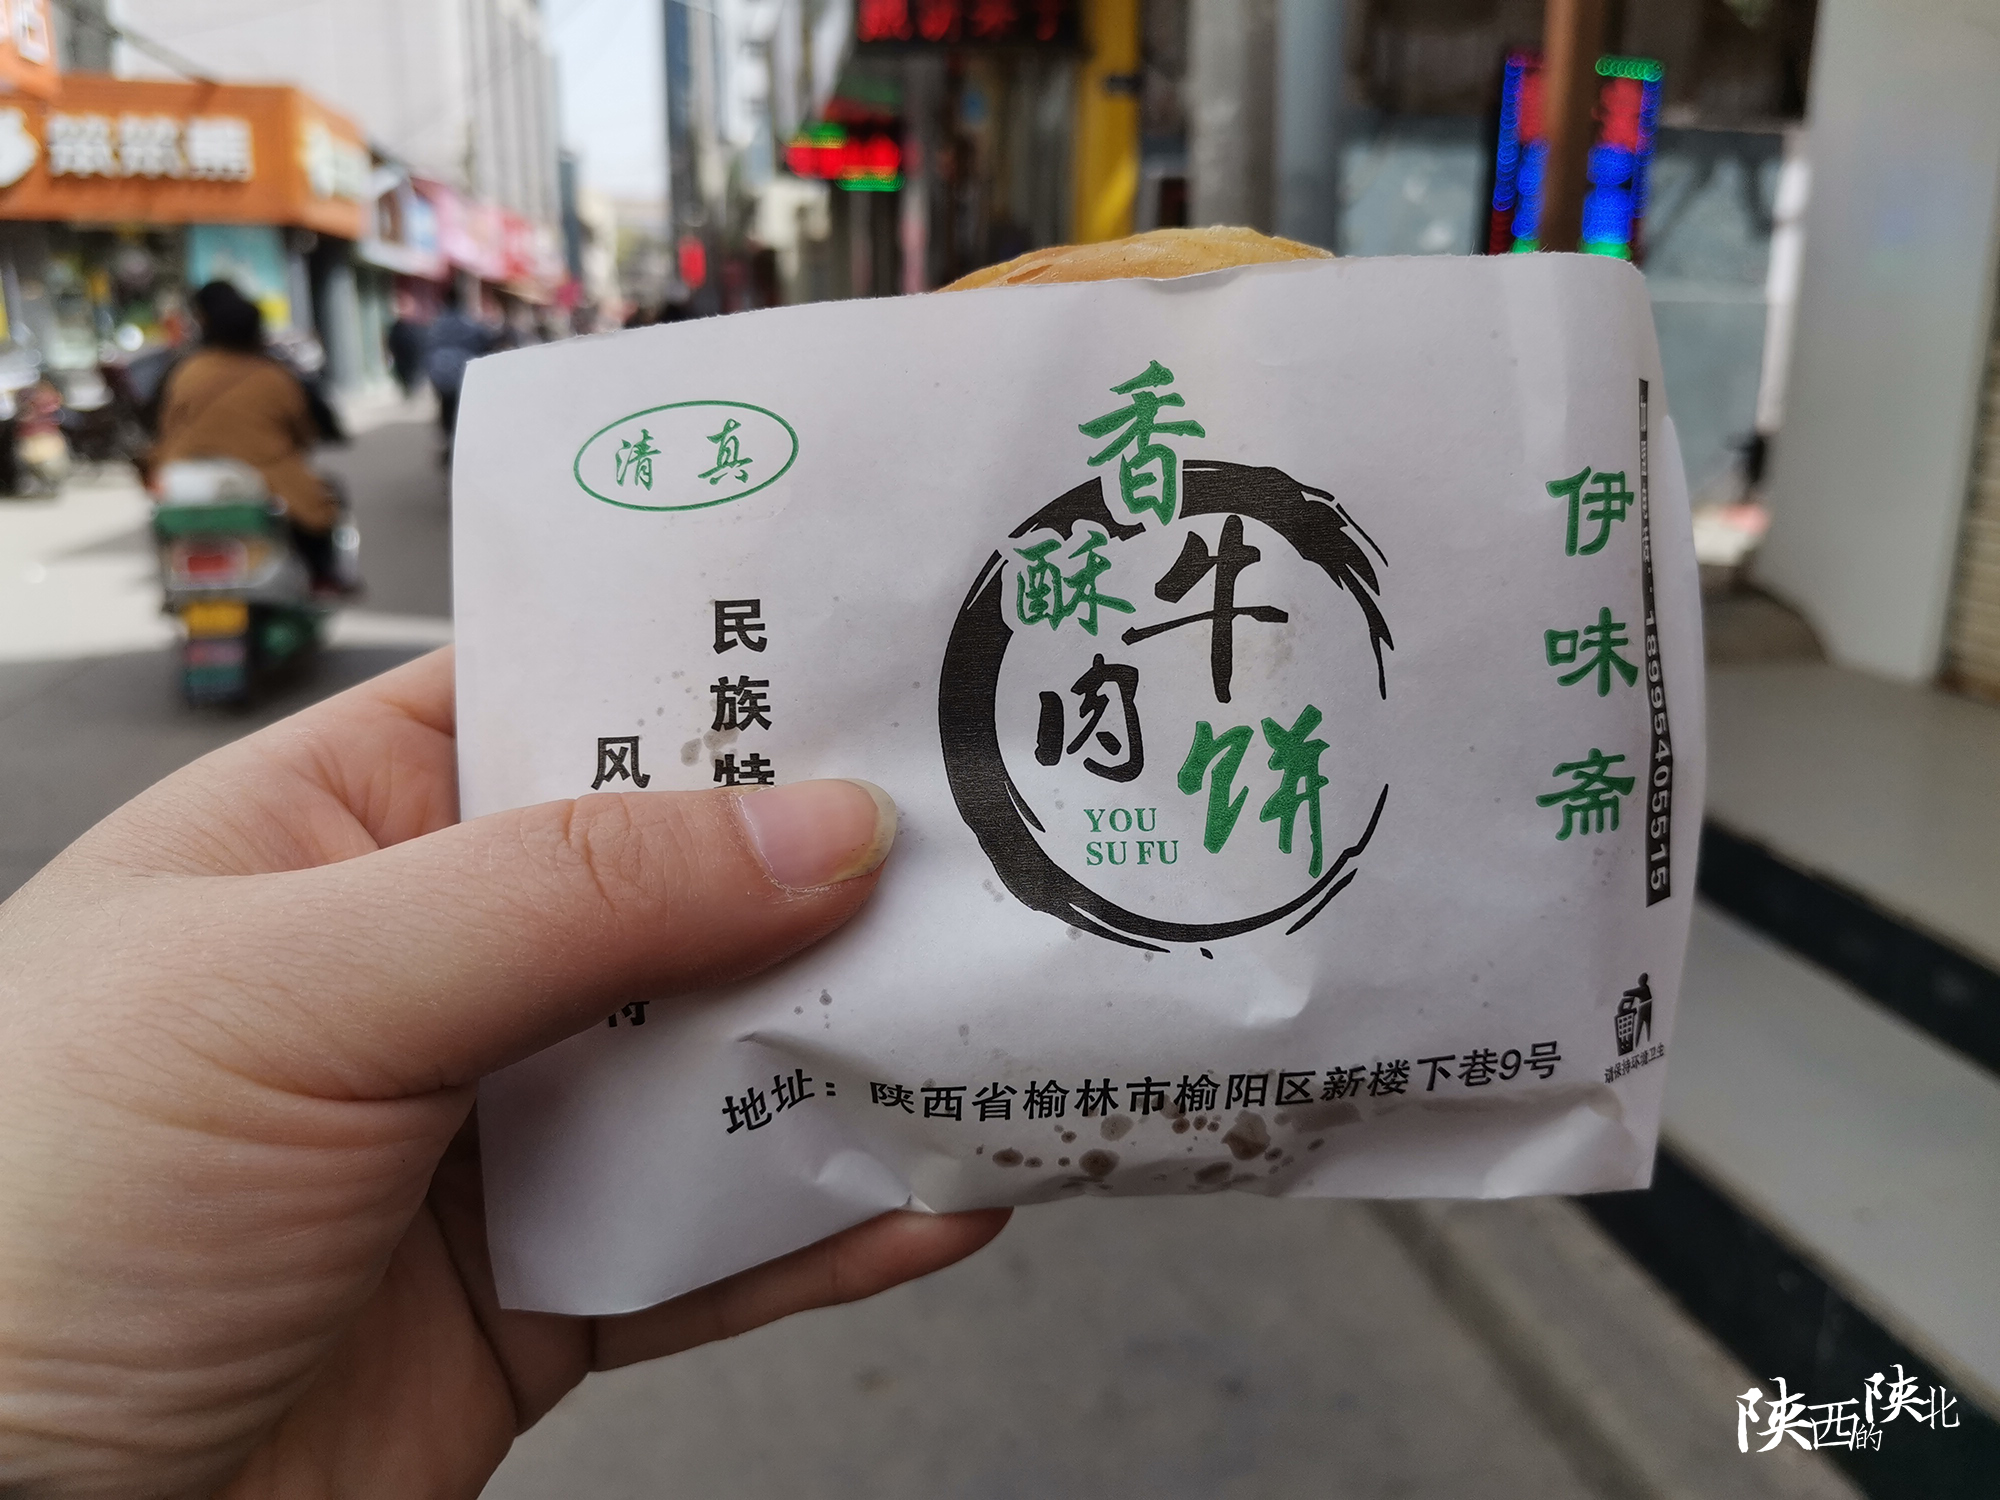 笨笨熊
清真
香
酥牛
肉饼
YOU
SU FU
民族特
风
伊味斋
18995405515
地址：陕西省榆林市榆阳区新楼下巷9号
请保持环境卫生
陕西的陕北